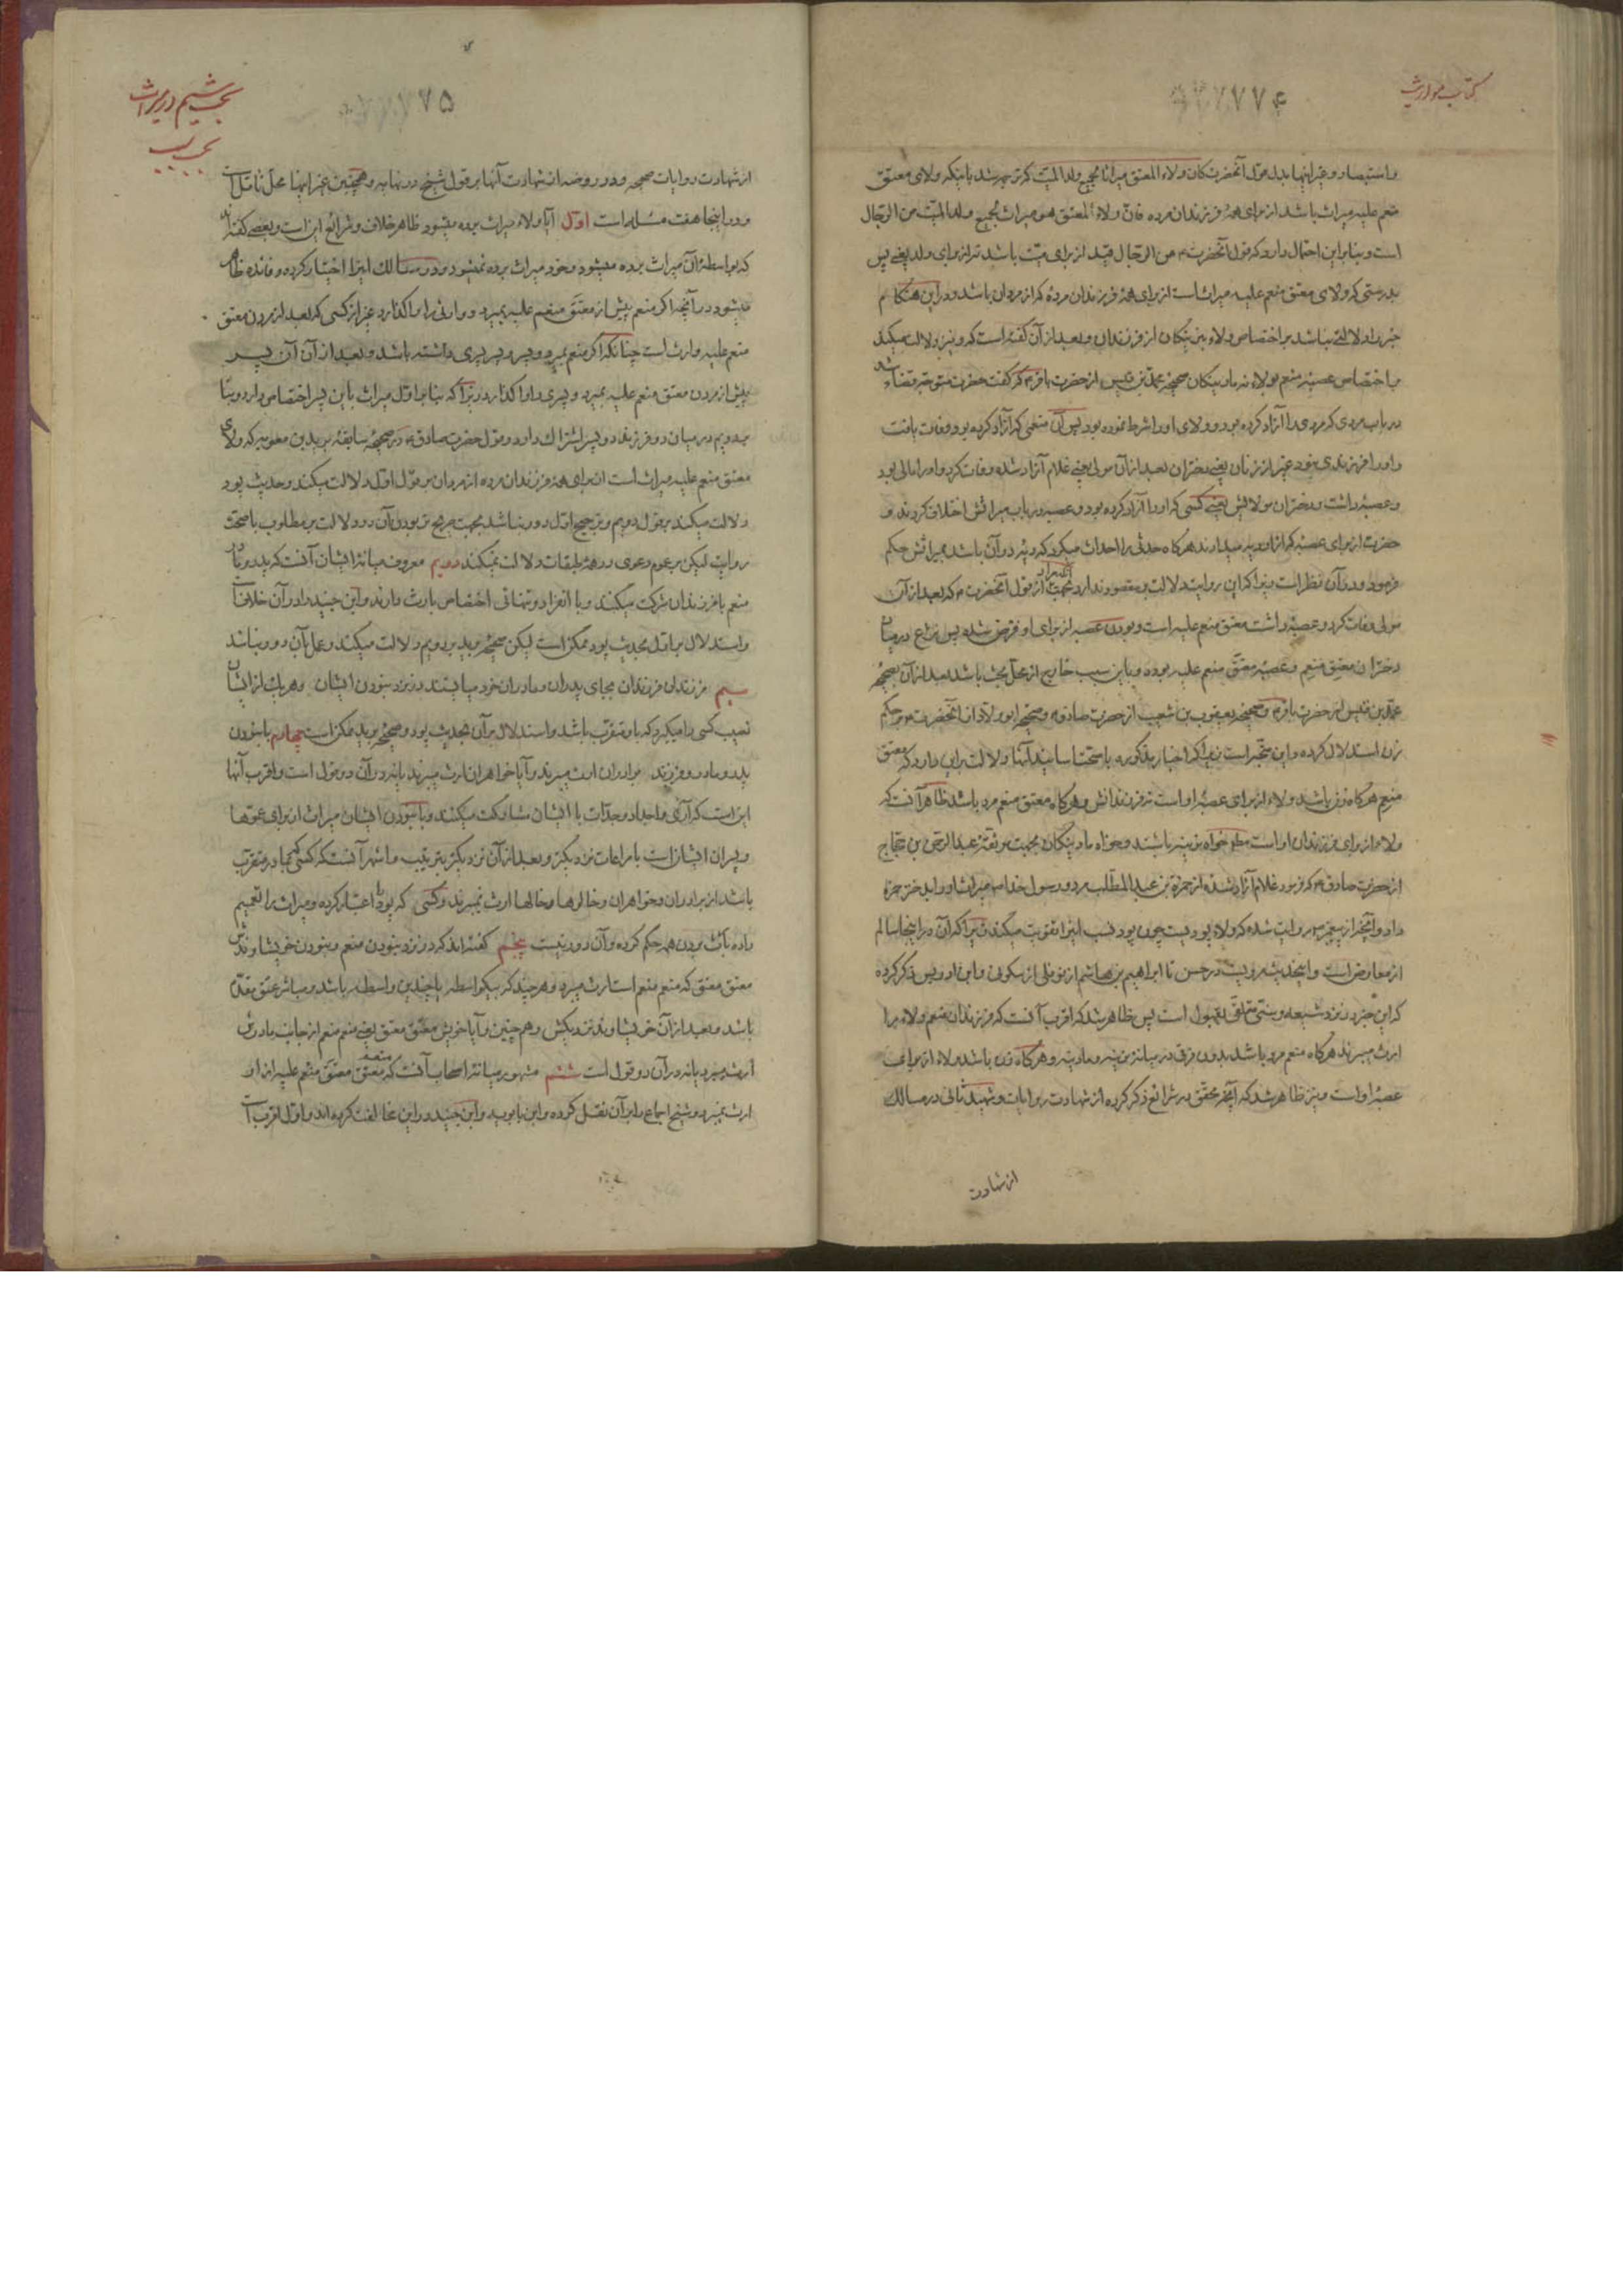 كتاب مواريث
۷۷۴
واستبصار وغير اينها بدل قول آنحضرت كان ولاء المعتق ميراثا لجميع ولد الميت كه ترجمه شد باينكه ولاى معتق
منعم عليه ميراث باشد از براى همهٔ فرزندان مرده فان ولاء المعتق هو ميراث لجميع ولد الميت من الرجال
است و بنابراين احتمال دارد كه قول آنحضرت من الرجال قيد از براى ميت باشد نه از براى ولد يعنى پس
بدرستى كه ولاى معتق منعم عليه ميراث است از براى همهٔ فرزندان مرده كه از مردان باشد و در اين هنگام
خبر را دلالتى نباشد بر اختصاص ولاء بنرينگان از فرزندان و بعد از آن گفته است كه و نيز دلالت ميكند
بر اختصاص عصبهٔ منعم بولاء نه مادينگان صحيحهٔ محمد بن قيس از حضرت باقر كه گفت حضرت متوجه قضاء شد
در باب مردى كه مردى را آزاد كرده بود و ولاى او را شرط نموده بود پس آن منعمى كه آزاد كرده بود وفات يافت
و او را فرزندى نبود غير از زنان يعنى دختران بعد از آن مولى يعنى غلام آزاد شده وفات كرد و او را مالى بود
و عصبهٔ داشت و دختران مولايش يعنى كسى كه او را آزاد كرده بود و عصبه در باب ميراثش اختلاف كردند و
حضرت از براى عصبه كه از او ديه ميدادند هرگاه حدثى را احداث ميكرد كه ديه در آن باشد بميراثش حكم
فرمود و در آن نظر است زيرا كه اين روايت دلالت بمقصود ندارد بجهت آنكه مراد از قول آنحضرت كه بعد از آن
مولى وفات كرد و عصبهٔ داشت معتق منعم عليه است و بودن عصبه از براى او فرض شده پس نزاع در ميان
دختران معتق منعم و عصبهٔ معتق منعم عليه بوده و باين سبب خارج از محل بحث باشد بعد از آن بصحيحهٔ
محمد بن قيس از حضرت باقر و صحيحهٔ يعقوب بن شعيب از حضرت صادق و صحيحهٔ ابو ولاد از آنحضرت بر حكم
زن استدلال كرده و اين متجه است زيرا كه اخبار مذكوره با صحت اسانيد آنها دلالت بر اين دارد كه معتق
منعم هرگاه زن باشد ولاء از براى عصبهٔ او است نه فرزندانش و هرگاه معتق منعم مرد باشد ظاهر آنست كه
ولاء از براى فرزندان او است مطلق خواه نرينه باشند و خواه مادينگان بجهت موثقهٔ عبد الرحمن بن حجاج
از حضرت صادق كه فرمود غلام آزاد شده از حمزة بن عبد المطلب مرد و رسول خدا ميراث او را بدختر حمزه
داد و آنچه از پيغمبر روايت شده كه ولاء پوديست چون پود نسب اينرا تقويت ميكند زيرا كه آن در اينجا سالم
از معارض است و اينحديث مرويست در حسن تا ابراهيم بن هاشم از نوفلى از سكونى و ابن ادريس ذكر كرده
كه اين خبر در نزد شيعه و سنى متلقى بقبول است پس ظاهر شد كه اقرب آنست كه فرزندان منعم ولاء را
ارث ميبرند هرگاه منعم مرد باشد بدون فرق در ميانهٔ نرينه و مادينه و هرگاه زن باشد ولاء از براى
عصبهٔ او است و نيز ظاهر شد كه آنچه محقق در شرائع ذكر كرده از شهادت روايات و شهيد ثانى در مسالك
از شهادت
بحث ششم در ميراث
۷۷۵
از شهادت روايات صحيحه و در روضه از شهادت آنها بر قول شيخ در نهايه و همچنين غير اينها محل تامل است
و در اينجا هفت مسئله است اول آيا ولاء ميراث برده ميشود ظاهر خلاف و شرائع اين است و بعضى گفته اند
كه بواسطهٔ آن ميراث برده ميشود و خود ميراث برده نميشود و در مسالك اينرا اختيار كرده و فائده ظاهر
ميشود در آنچه اگر منعم پيش از معتق منعم عليه بميرد و وارثى را واگذارد غير از كسى كه بعد از مردن معتق
منعم عليه وارث است چنانكه اگر منعم بميرد و پسر و پسر پسرى داشته باشد و بعد از آن آن پسر
پيش از مردن معتق منعم عليه بميرد و پسرى را واگذارد زيرا كه بنابر اول ميراث باين پسر اختصاص دارد و بنا
بدويم در ميان دو فرزندزاد و پسر اشتراك دارد و قول حضرت صادق در صحيحهٔ سابقهٔ بريد بن معويه كه ولاى
معتق منعم عليه ميراث است از براى همهٔ فرزندان مرده از مردان بر قول اول دلالت ميكند و حديث پود
دلالت ميكند بر قول دويم و ترجيح اول دور نباشد بجهت صريحتر بودن آن در دلالت بر مطلوب با صحت
روايت ليكن بر عموم دعوى در همهٔ طبقات دلالت نميكند دويم معروف ميانهٔ ايشان آنست كه پدر و مادر
منعم با فرزندان شركت ميكنند و با انفراد و تنهائى اختصاص بارث دارند و ابن جنيد را در آن خلاف است
و استدلال بر اول بحديث پود ممكن است ليكن صحيحهٔ بريد بر دويم دلالت ميكند و عمل بآن دور نباشد
سيم فرزندان فرزندان بجاى پدران و مادران خود ميايستند در نزد نبودن ايشان و هر يك از ايشان
نصيب كسى را ميگيرد كه باو متقرب باشد و استدلال بر آن بحديث پود و صحيحهٔ بريد ممكن است چهارم با نبودن
پدر و مادر و فرزند برادران ارث ميبرند و آيا خواهران ارث ميبرند يا نه در آن دو قول است و اقرب آنها
اين است كه آرى و اجداد و جدات با ايشان مشاركت ميكنند و با نبودن ايشان ميراث از براى عموها
و پسران ايشانست با مراعات نزديكتر و بعد از آن نزديكتر بترتيب و اشهر آنست كه كسى كه بمادر متقرب
باشد از برادران و خواهران و خالوها و خالهها ارث نميبرند و كسى كه پود را اعتبار كرده و ميراث را تعميم
داده بارث بردن همه حكم كرده و آن دور نيست پنجم گفته اند كه در نزد نبودن منعم و نبودن خويشاوندش
معتق معتق كه منعم منعم است ارث ميبرد و هر چند كه بيكواسطه يا چندين واسطه باشد و مباشر عتق مقدم
باشد و بعد از آن خويشاوند نزديكش و هم چنين و آيا خويش معتق معتق يعنى منعم منعم از جانب مادرش
ارث ميبرد يا نه در آن دو قول است ششم مشهور ميانهٔ اصحاب آنست كه منعم معتق معتق منعم عليه از او
ارث نميبرد و شيخ اجماع را بر آن نقل كرده و ابن بابويه و ابن جنيد در اين مخالفت كرده اند و اول اقرب است